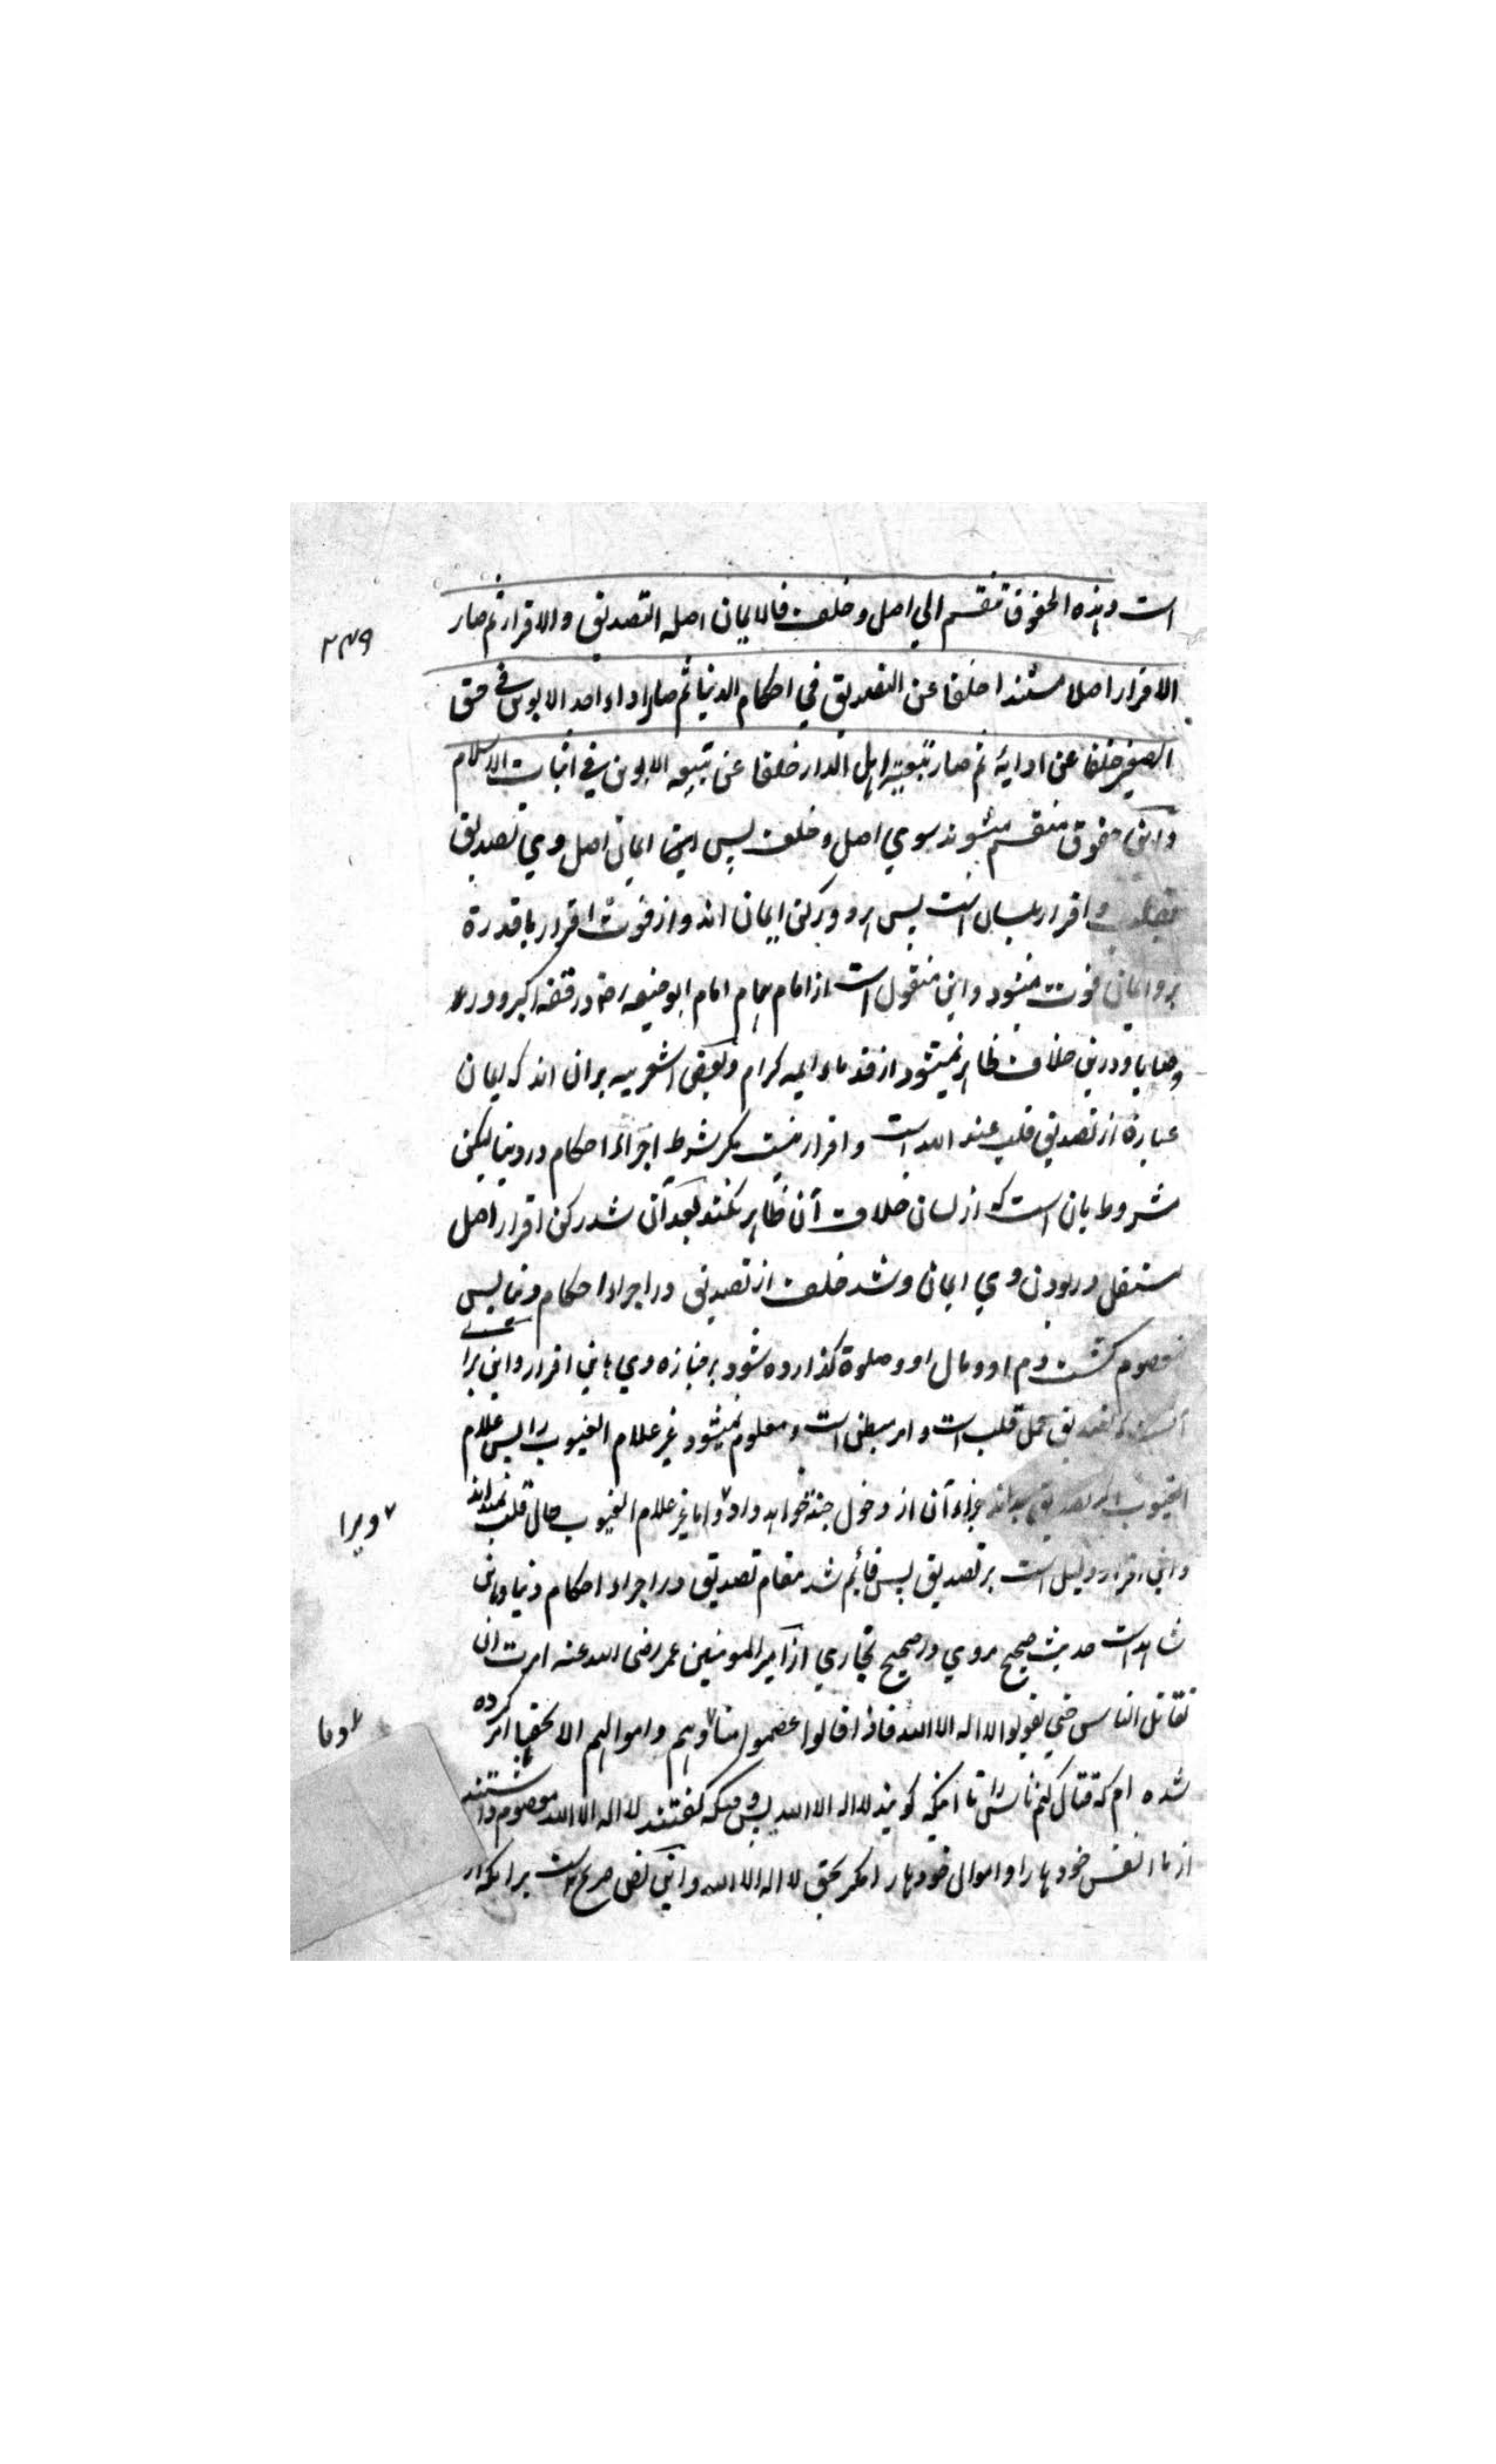 است وهذه الحقوق تنقسم الي اصل وخلف فالايمان اصله التصديق والاقرار ثم صار
الاقرار اصلا مستندا خلفا عن التصديق في احكام الدنيا ثم صار اداء احد الابوين في حق
الصغير خلفا عن ادايه ثم صار تبعية اهل الدار خلفا عن تبعيه الابوين في اثبات الاسلام
واین حقوق منقسم میشوند بسوي اصل وخلف پس ایمان اصل وي تصدیق
بقلب و اقرار بلسان است پس هر دو رکن ایمان اند و از فوت اقرار با قدرة
برو ایمان فوت میشود و این منقول است از امام همام امام ابو حنیفه رض در فقه اکبر و در
وصایا و درین خلاف ظاهر نمیشود از قدماء ایمه کرام و بعض اشعریه بران اند که ایمان
عبارة از تصدیق قلب عند الله است و اقرار نیست مگر شرط اجراء احکام در دنیا لیکن
مشروط بان است که از لسان خلاف آن ظاهر نکند بعد آن شد رکن اقرار اصل
مستقل در بودن وي ایمان و شد خلف از تصدیق در اجراء احکام دنیا پس
معصوم گشت دم او و مال او و صلوة گذارده شود بر جنازه وي باین اقرار و این برا
آنست که تصدیق عمل قلب است و امر مبطن است و معلوم نمیشود غیر علام الغیوب را پس علام
الغیوب اگر تصدیق میداند جزاء آن از دخول جنة خواهد داد و اما غیر علام الغیوب حال قلب نمیداند
۷ ویرا
و این اقرار دلیل است بر تصدیق پس قائم شد مقام تصدیق در اجراء احکام دنیا و باین
شاهد است حدیث صحیح مروي در صحیح بخاري از امیر المومنین عمر رضی الله عنه امرت ان
نقاتل الناس حتي یقولوا لا اله الا الله فاذا قالوا عصموا منا وهم و اموالهم الا بحقها امر کرده
۷ دما
شده ام که قتال کنم ناس را تا اینکه گویند لا اله الا الله پس وقتیکه گفتند لا اله الا الله معصوم داشتند
از ما انفس خودها را و اموال خودها را مگر بحق لا اله الا الله و این نص صریح است برانکه اقرار